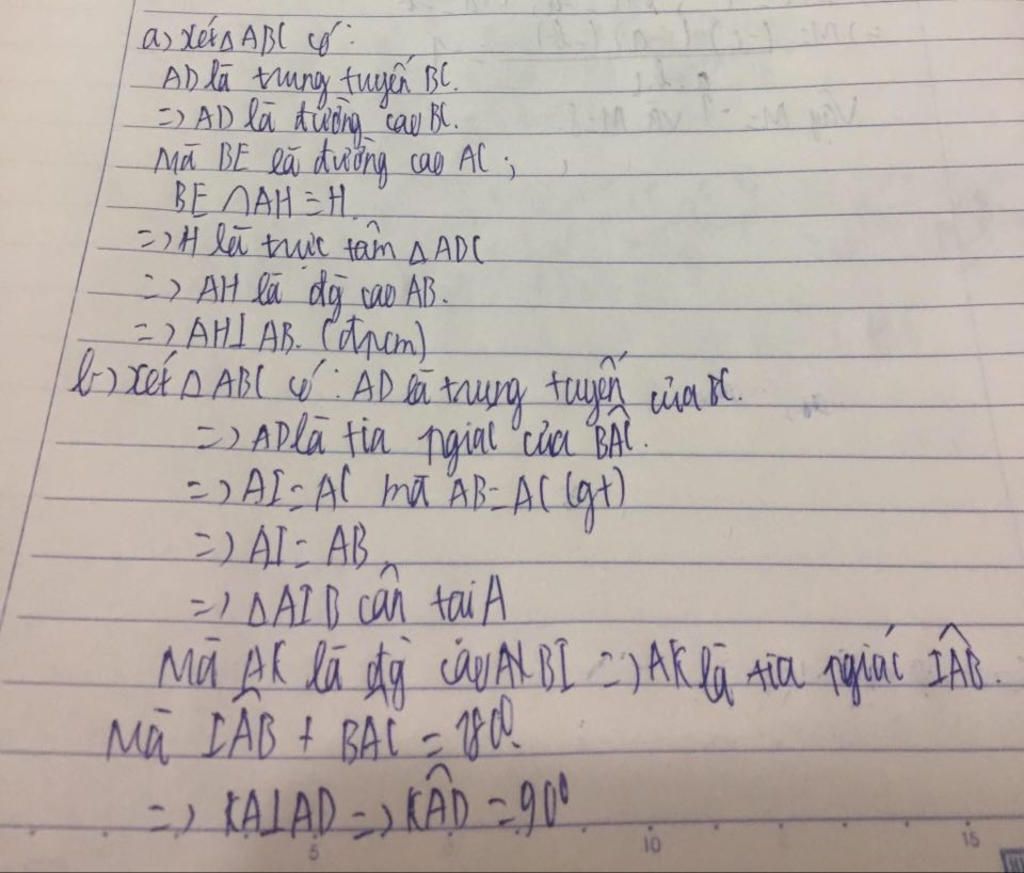 a) xét △ABC có:
AD là trung tuyến BC.
=> AD là đường cao BC.
Mà BE là đường cao AC;
BE ∩ AH = H
=> H là trực tâm △ADC
=> AH là đg cao AB.
=> AH⊥AB. (đpcm)
b) xét △ABC có: AD là trung tuyến của BC.
=> AD là tia pgiac của BÂC.
=> AI = AC mà AB = AC (gt)
=> AI = AB
=> △AIB cân tai A
Mà AK là đg cao BI => AK là tia pgiác IÂB.
Mà IÂB + BAC = 180°.
=> KA⊥AD => KÂD = 90°
5 10 15